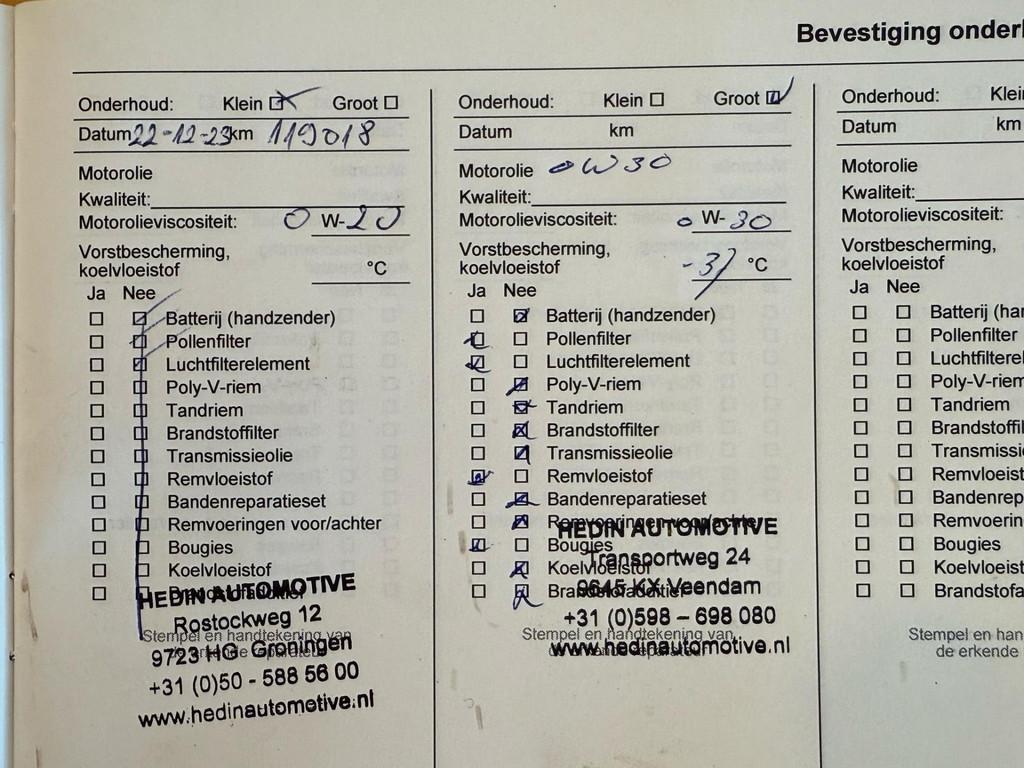 Bevestiging onder
Onderhoud: Klein ☒ Groot ☐
Datum 22-12-23 km 119018
Motorolie
Kwaliteit:
Motorolieviscositeit: 0 W-20
Vorstbescherming,
koelvloeistof °C
Ja Nee
Batterij (handzender)
Pollenfilter
Luchtfilterelement
Poly-V-riem
Tandriem
Brandstoffilter
Transmissieolie
Remvloeistof
Bandenreparatieset
Remvoeringen voor/achter
Bougies
Koelvloeistof
Brandstofadditief
HEDIN AUTOMOTIVE
Rostockweg 12
Stempel en handtekening van
9723 HG Groningen
de erkende reparateur
+31 (0)50 - 588 56 00
www.hedinautomotive.nl
Onderhoud: Klein ☐ Groot ☑
Datum km
Motorolie 0W30
Kwaliteit:
Motorolieviscositeit: 0 W-30
Vorstbescherming,
koelvloeistof -37 °C
Ja Nee
Batterij (handzender)
Pollenfilter
Luchtfilterelement
Poly-V-riem
Tandriem
Brandstoffilter
Transmissieolie
Remvloeistof
Bandenreparatieset
Remvoeringen voor/achter
HEDIN AUTOMOTIVE
Bougies
Transportweg 24
Koelvloeistof
9645 KX Veendam
Brandstofadditief
+31 (0)598 – 698 080
Stempel en handtekening van
de erkende reparateur
www.hedinautomotive.nl
Onderhoud: Klei
Datum km
Motorolie
Kwaliteit:
Motorolieviscositeit:
Vorstbescherming,
koelvloeistof
Ja Nee
Batterij (har
Pollenfilter
Luchtfilterel
Poly-V-riem
Tandriem
Brandstoffil
Transmissi
Remvloeist
Bandenrep
Remvoerin
Bougies
Koelvloeist
Brandstofa
Stempel en han
de erkende